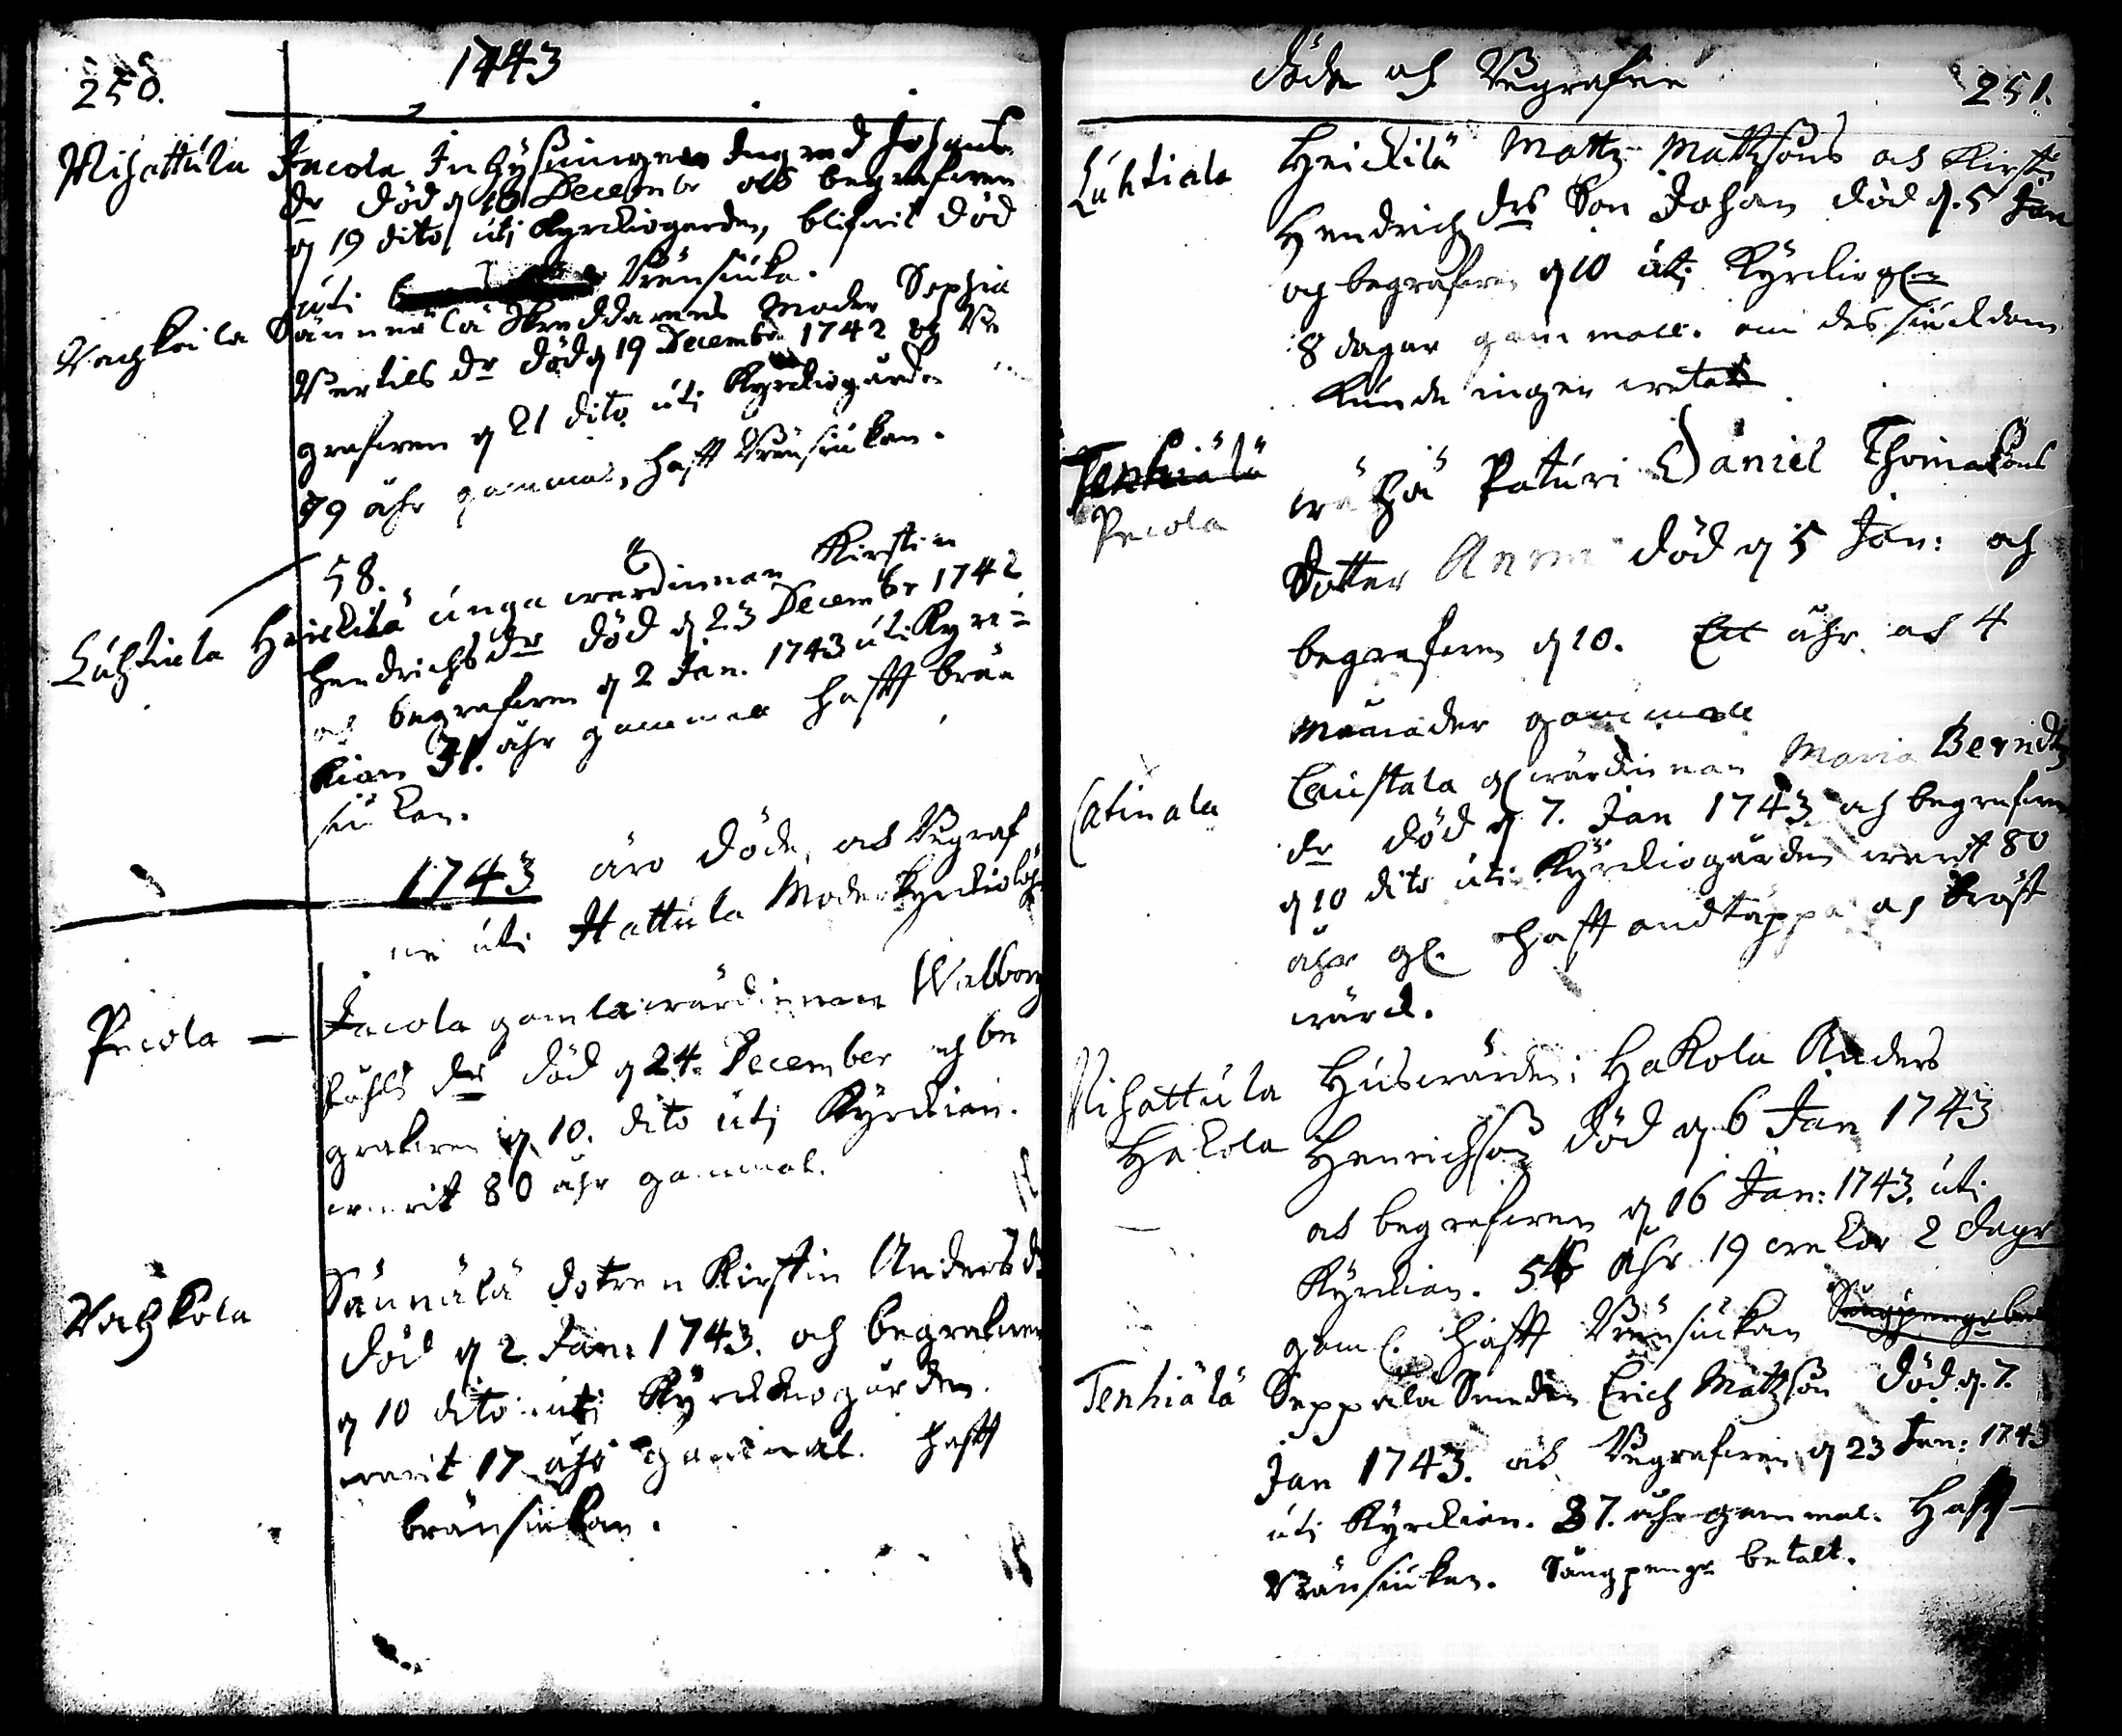 250.
1743
Nihattula Jacola Inhysningen Ingred Johans
dr död d 16 December och begrafwen
d 19 dito uti Kyrckiogården, blifwit död
uti Bränsiuka.
Vachkoila Sännälä Skreddarens Moder Sophia
Bertils dr död d 19 Decembr 1742 och Be
grafwen d 21 dito uti Kyrckiogården
79 åhr gammal, hafft Bränsiukan.
58.
Luhtiala Heickilä unga wärdinnan Kirstin
Hendrichs dr död d 23 Decembr 1742
och begrafwen d 2 Jan. 1743 uti Kyrc=
kian 31. åhr gammal hafft brän
siukan.
1743 äro döde, och Begraf
ne uti Hattula Moderkyrckio
Pecola — Jacola gamla wärdinnan Walborg
Påhls dr död d 24 December och be
grafwen d 10. dito uti Kyrckian.
warit 80 åhr gammal.
Vachkola Sännälä dotren Kirstin Anders d
död d 2. Jan: 1743. och begrafwen
d 10 dito uti Kyrckiogården.
warit 17 åhr gammal. hafft
bränsiukan.
Döde och Begrafne
251.
Luhtiala Heickilä Mattz Mattzsons och Kirstin
Hendrichs drs Son Johan död d. 5 Jan
och begrafwen d 10 uti Kyrckiog
8 dagar gammall. om des siuckdom
kunde ingen weta
Tenhiälä
Pecola
Påturi Daniel Thomasons
Dotter Anna död d 5 Jan: och
begrafwen d 10. Ett åhr och 4
månader gammall
Catinala Caustala gl wärdinnan Maria Berndtz
dr död d 7. Jan 1743 och begrafwen
d 10 dito uti Kyrckiogården warit 80
åhr gl. hafft andtäppa och bröst
wärck.
Nihattula Huswärden i Hakola Anders
Hakola Henrichson död d 6 Jan 1743
och begrafwen d 16 Jan: 1743. uti
Kyrckian. åhr 19 wekor 2 dagr
gaml. hafft Bränsiukan Sängpengr
Tenhiälä Seppälä Smeden Erich Mattzson död d. 7.
Jan 1743. och Begrafwen d 23 Jan: 1743
uti Kyrckian. 37. åhr gammal. Hafft
Bränsiukan. Sängpengr betalt.